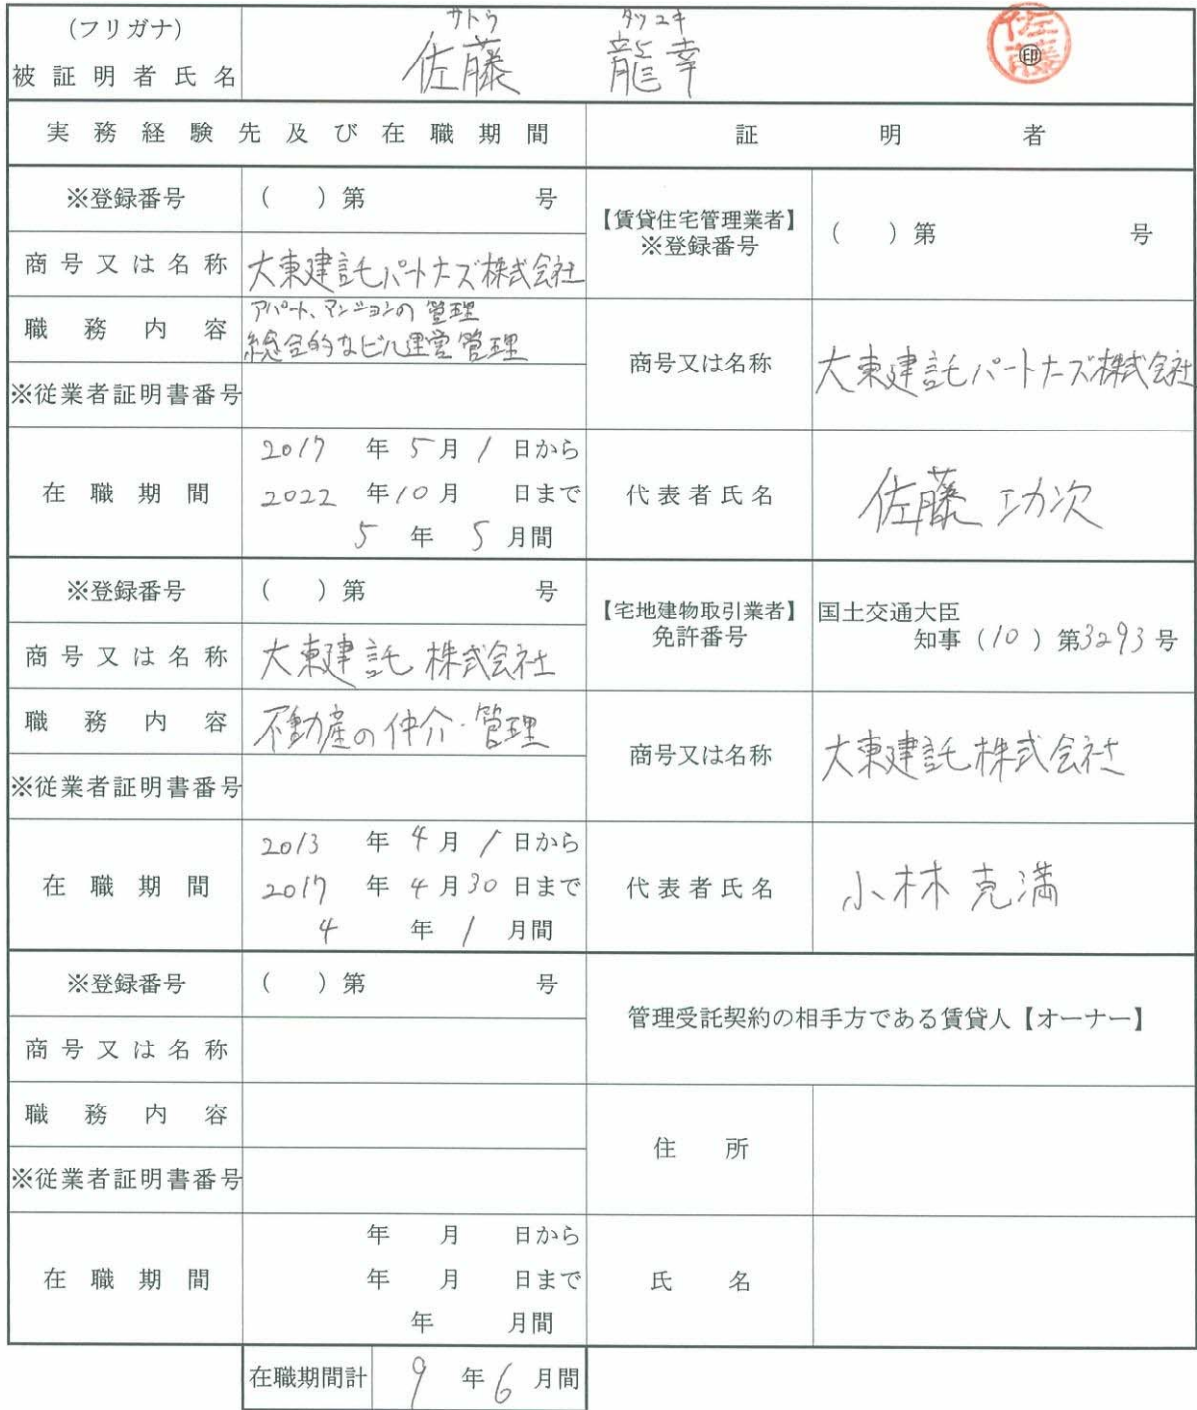 (フリガナ) サトウ タツユキ
被証明者氏名 佐藤 龍幸 佐藤 印
実務経験先及び在職期間 証明者
※登録番号 ( )第 号
【賃貸住宅管理業者】※登録番号 ( )第 号
商号又は名称 大東建託パートナズ株式会社
職務内容 アパート、マンションの管理
総合的なビル運営管理
商号又は名称 大東建託パートナーズ株式会社
※従業者証明書番号
在職期間 2017 年 5月 1 日から
2022 年 10月 日まで
5 年 5 月間
代表者氏名 佐藤 功次
※登録番号 ( )第 号
【宅地建物取引業者】免許番号 国土交通大臣
知事(10)第3293号
商号又は名称 大東建託 株式会社
職務内容 不動産の仲介・管理
商号又は名称 大東建託株式会社
※従業者証明書番号
在職期間 2013 年 4月 1 日から
2017 年 4月30日まで
4 年 1 月間
代表者氏名 小林 克満
※登録番号 ( )第 号
管理受託契約の相手方である賃貸人【オーナー】
商号又は名称
職務内容
住所
※従業者証明書番号
在職期間 年 月 日から
年 月 日まで
年 月間
氏名
在職期間計 9 年 6 月間